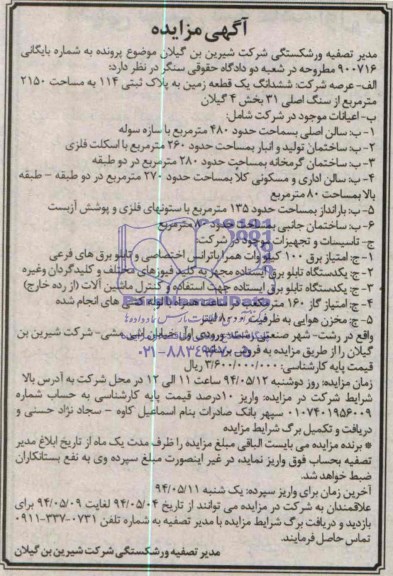 آگهی مزایده
مدیر تصفیه ورشکستگی شرکت شیرین بن گیلان موضوع پرونده به شماره بایگانی
۹۰۰۷۱۶ مطروحه در شعبه دو دادگاه حقوقی سنگر در نظر دارد:
الف- عرصه شرکت: ششدانگ یک قطعه زمین به پلاک ثبتی ۱۱۴ به مساحت ۲۱۵۰
مترمربع از سنگ اصلی ۳۱ بخش ۴ گیلان
ب- اعیانات موجود در شرکت شامل:
۱- ب: سالن اصلی بمساحت حدود ۴۸۰ مترمربع با سازه سوله
۲- ب: ساختمان تولید و انبار بمساحت حدود ۲۶۰ مترمربع با اسکلت فلزی
۳- ب: ساختمان گرمخانه بمساحت حدود ۲۸۰ مترمربع در دو طبقه
۴- ب: سالن اداری و مسکونی کلاً بمساحت حدود ۲۷۰ مترمربع در دو طبقه - طبقه
بالا بمساحت ۸۰ مترمربع
۵- ب: بارانداز بمساحت حدود ۱۳۵ مترمربع با ستونهای فلزی و پوشش آزبست
۶- ب: ساختمان جانبی بمساحت حدود مترمربع
ج- تاسیسات و تجهیزات موجود در شرکت:
۱- ج: امتیاز برق ۱۰۰ کیلو وات همراه باترانس اختصاصی و تابلو برق های فرعی
۲- ج: یکدستگاه تابلو برق ایستاده مجهز به کلید فیوزهای مختلف و کلیدگردان وغیره
۳- ج: یکدستگاه تابلو برق ایستاده جهت استفاده و کنترل ماشین آلات (از رده خارج)
۴- ج: امتیاز گاز ۱۶۰ مترمکعب در ساعت همراه با لوله کشی های انجام شده
۵- ج: مخزن هوایی به ظرفیت لیتر
واقع در رشت- شهر صنعتی رشت- ورودی اول- خیابان - شرکت شیرین بن
گیلان را از طریق مزایده به فروش برساند.
۰۲۱-۸۸۳۴۹۶۷۰
قیمت پایه کارشناسی: ۳/۶۰۰/۰۰۰/۰۰۰ ریال
زمان مزایده: روز دوشنبه ۹۴/۰۵/۱۲ ساعت ۱۱ الی ۱۲ در محل شرکت به آدرس بالا
شرایط شرکت در مزایده: واریز ۱۰درصد قیمت پایه کارشناسی به حساب شماره
۰۱۰۷۴۰۱۹۵۶۰۰۹ سپهر بانک صادرات بنام اسماعیل کاوه - سجاد نژاد حسنی و
دریافت و تکمیل برگ شرایط مزایده
* برنده مزایده می بایست الباقی مبلغ مزایده را ظرف مدت یک ماه از تاریخ ابلاغ مدیر
تصفیه بحساب فوق واریز نماید، در غیر اینصورت مبلغ سپرده وی به نفع بستانکاران
ضبط خواهد شد.
آخرین زمان برای واریز سپرده: یک شنبه ۹۴/۰۵/۱۱
علاقمندان به شرکت در مزایده می توانند از تاریخ ۹۴/۰۵/۰۴ لغایت ۹۴/۰۵/۰۹ برای
بازدید و دریافت برگ شرایط مزایده با مدیر تصفیه به شماره تلفن ۰۷۳۱-۳۳۷-۰۹۱۱
تماس حاصل فرمایند.
مدیر تصفیه ورشکستگی شرکت شیرین بن گیلان